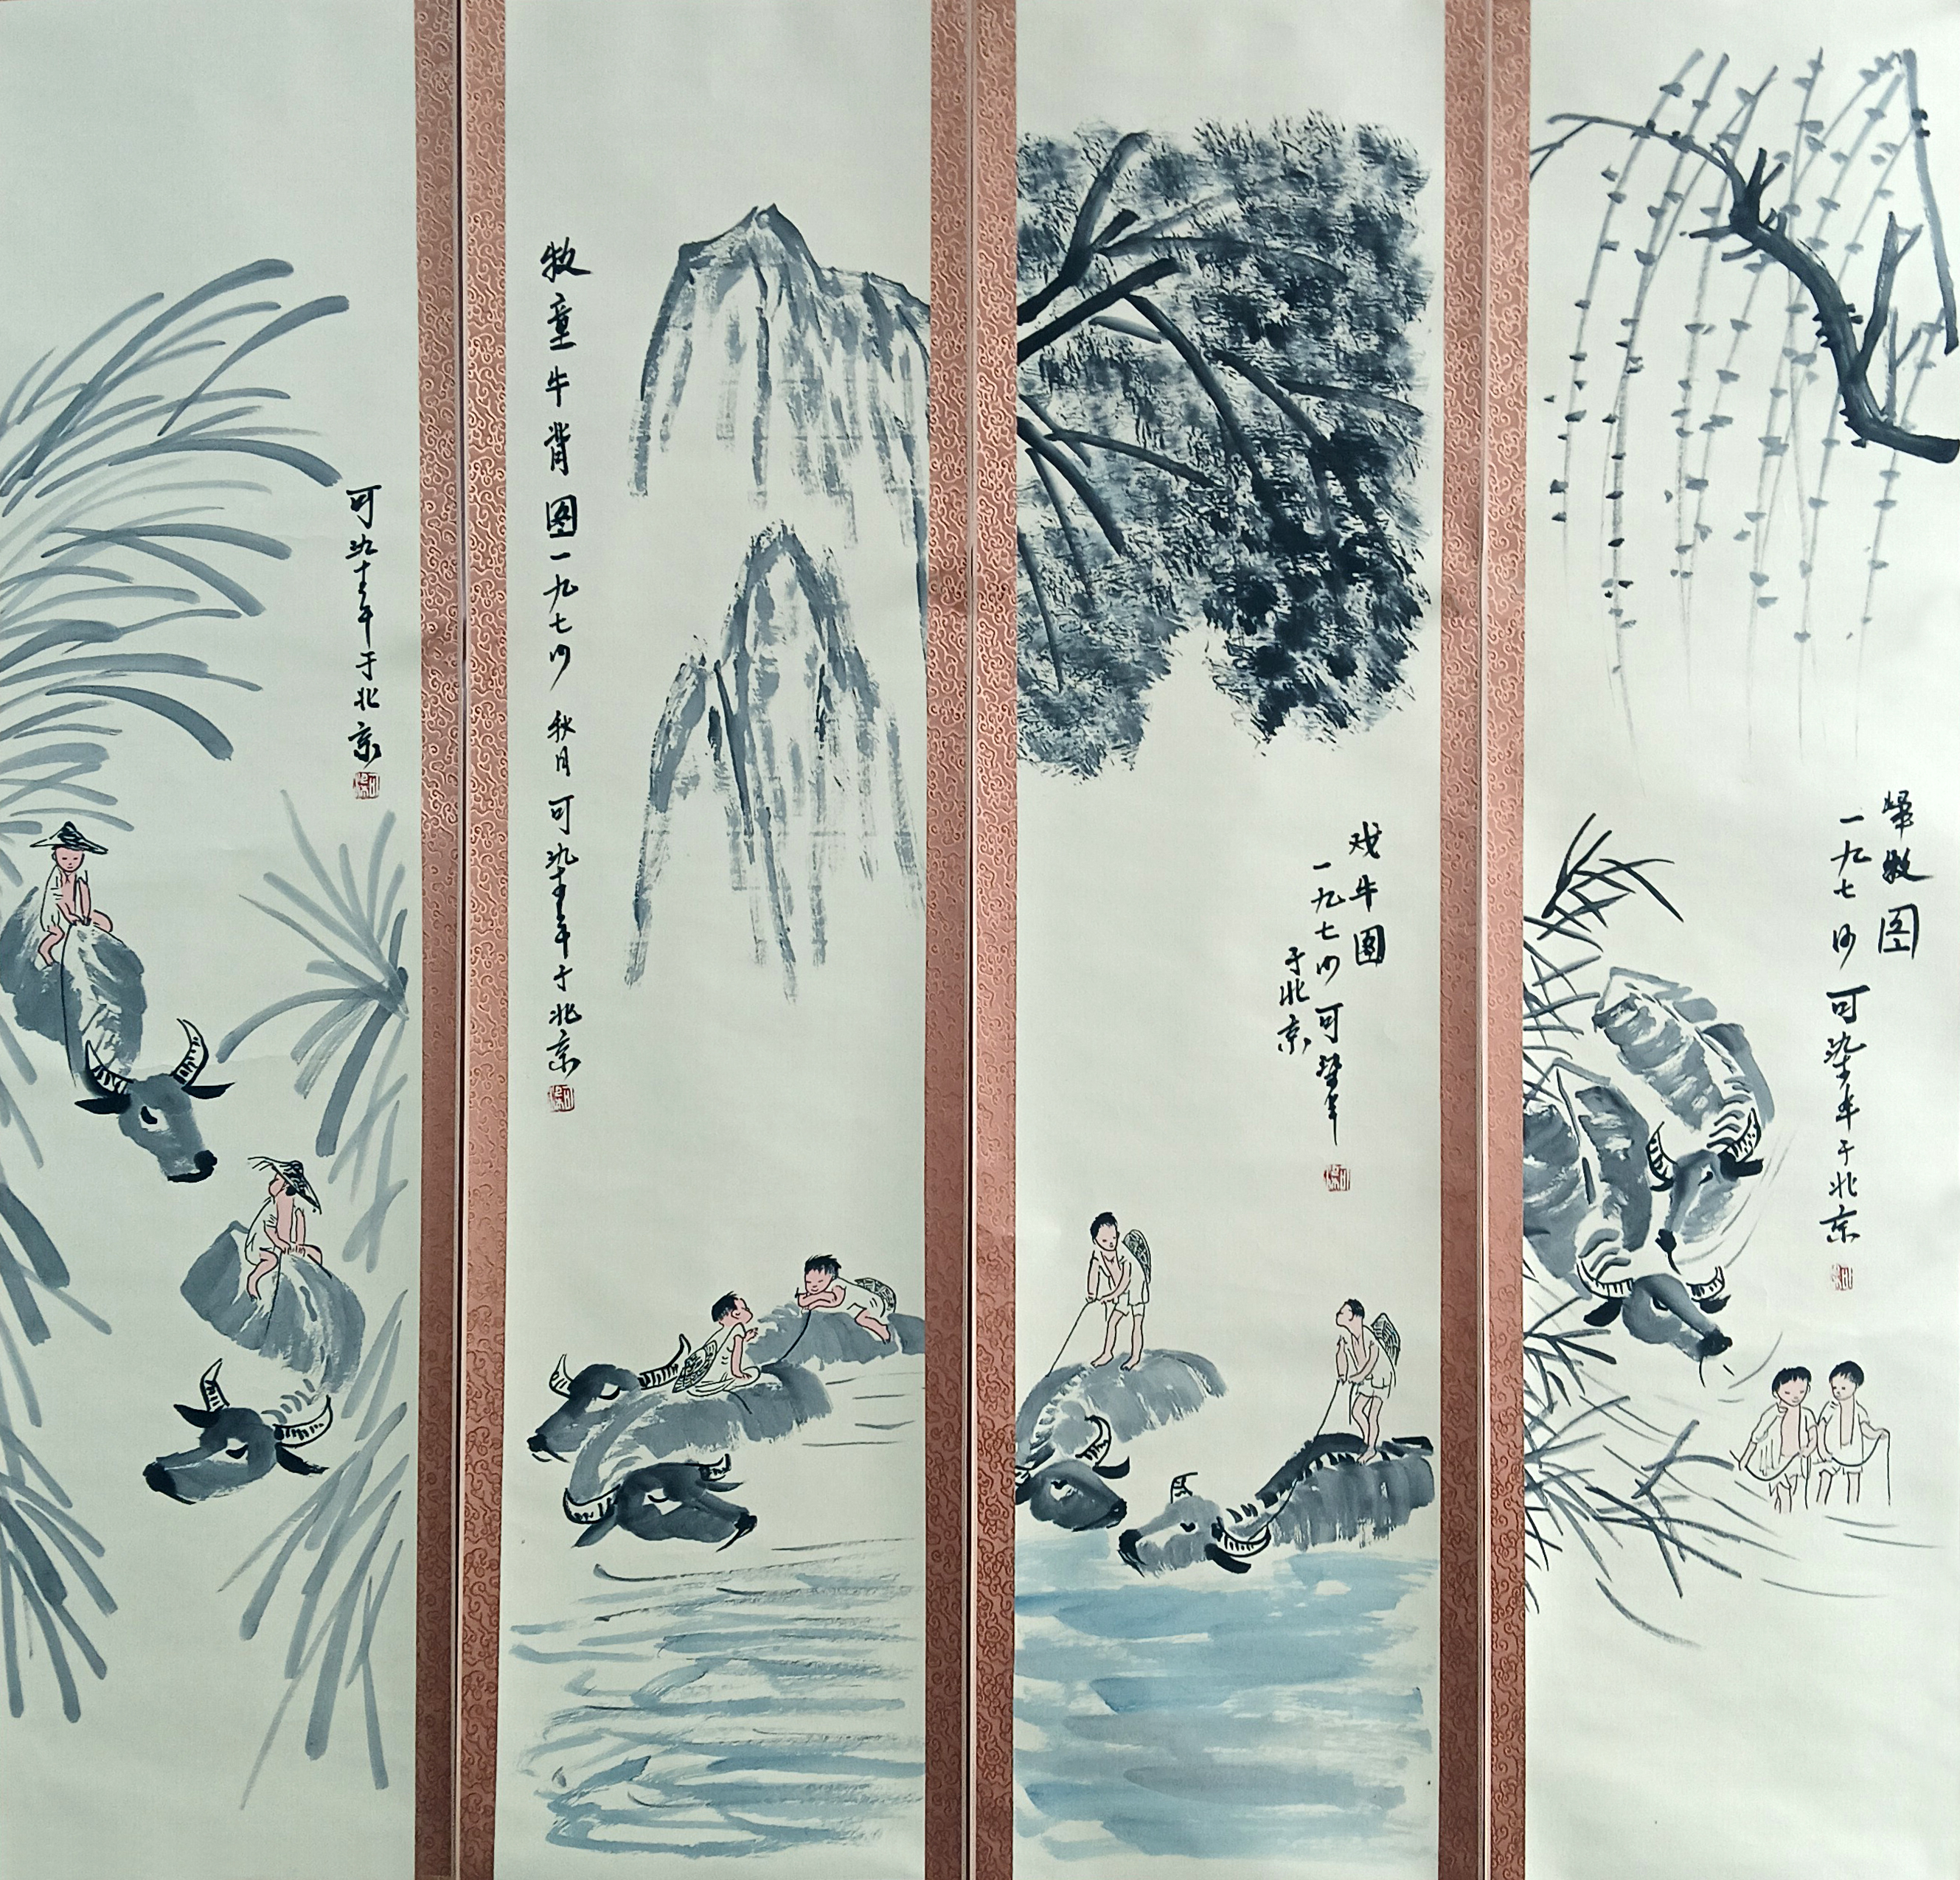 歸牧图
一九七 可染 于北京
戏牛图
一九七 可染
于北京
牧童牛背图一九七 秋月 可染 于北京
可染 于北京